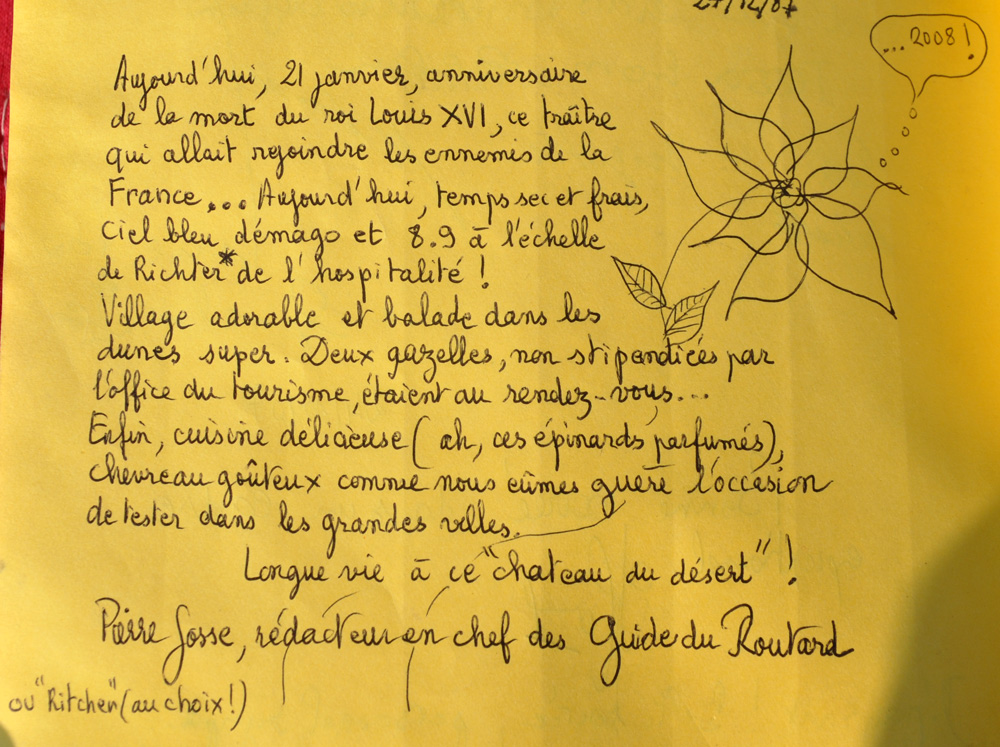 27/12/07
...2008!
Aujourd'hui, 21 janvier, anniversaire
de la mort du roi Louis XVI, ce traître
qui allait rejoindre les ennemis de la
France... Aujourd'hui, temps sec et frais,
ciel bleu démago et 8.9 à l'échelle
de Richter* de l'hospitalité !
Village adorable et balade dans les
dunes super. Deux gazelles, non stipendiées par
l'office du tourisme, étaient au rendez-vous...
Enfin, cuisine délicieuse (ah, ces épinards parfumés),
chevreau goûteux comme nous eûmes guère l'occasion
de tester dans les grandes villes.
Longue vie à ce "chateau du désert" !
Pierre Josse, rédacteur en chef des Guide du Routard
ou "Ritcher" (au choix !)